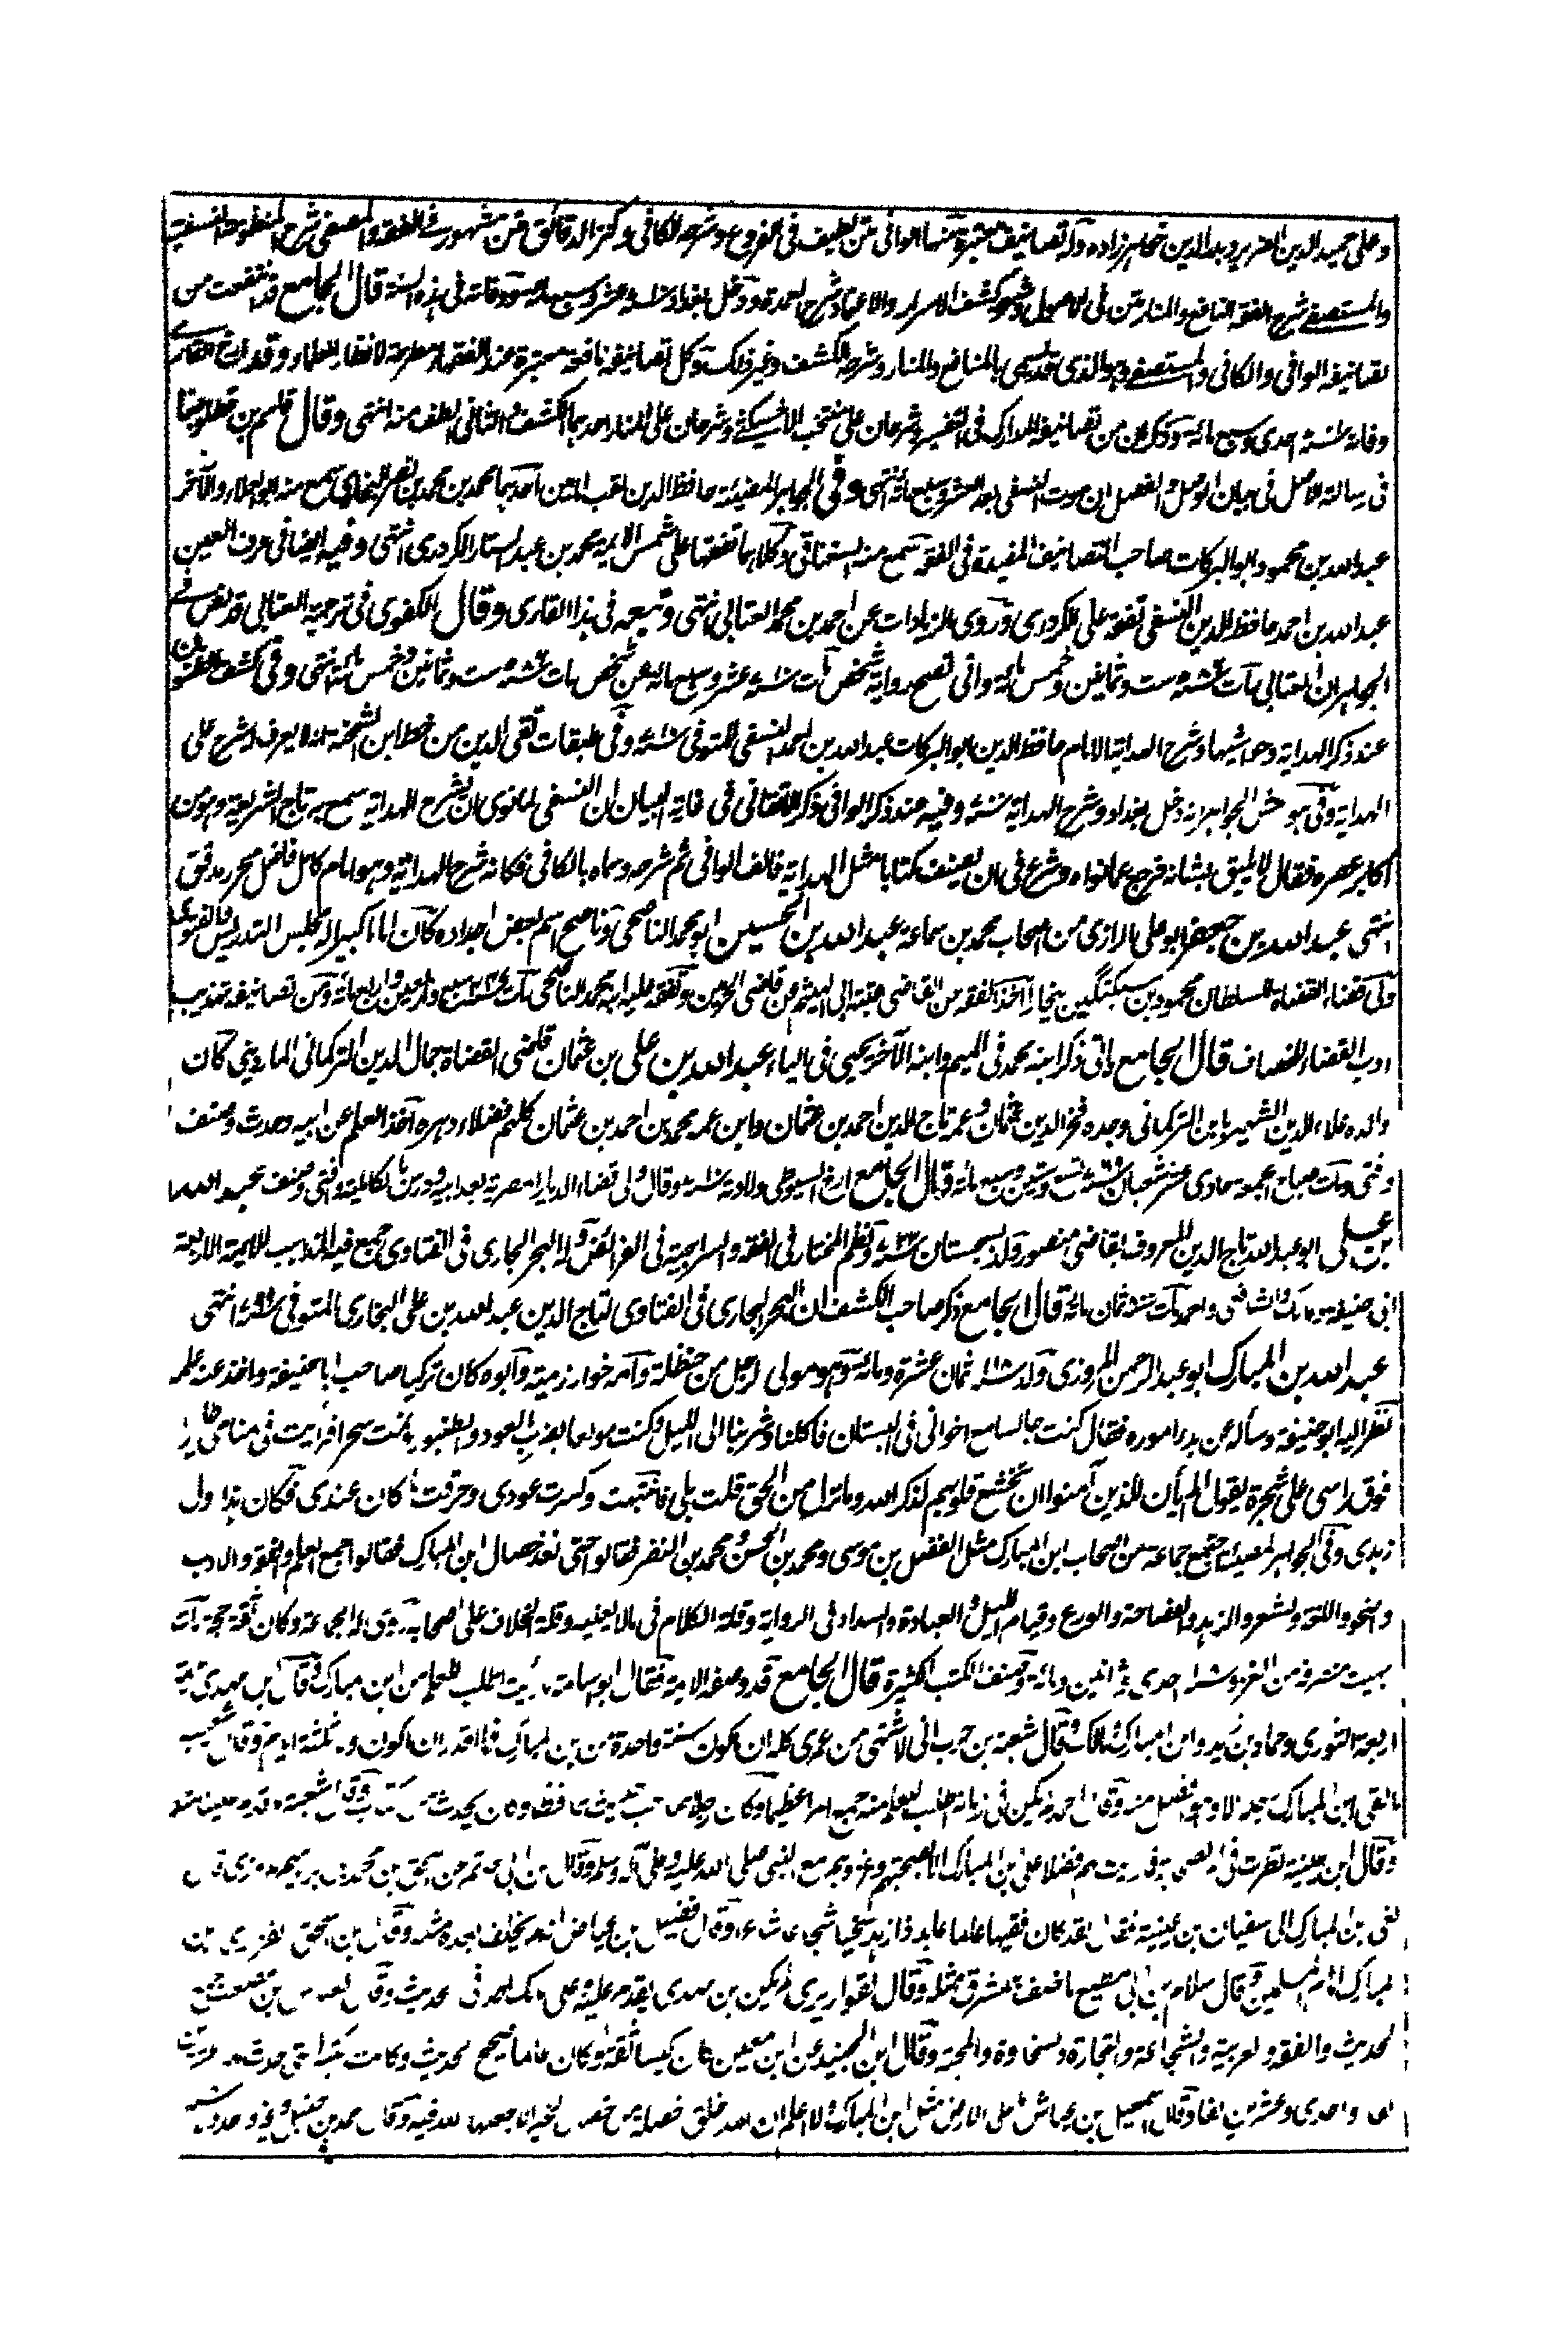 وعلى حميد الدين الضرير وبدر الدين خواهرزاده وله تصانيف معتبرة منها الوافى متن لطيف فى الفروع وشرحه الكافى وكنز الدقائق متن مشهور فى الفقه والمصفى شرح المنظومة النسفية
والمستصفى شرح الفقه النافع والمنار متن فى الاصول وشرحه كشف الاسرار والاعتماد شرح العمدة ودخل بغداد سنة عشر وسبع مائة ووفاته فى هذه السنة قال الجامع قد انتفعت من
تصانيفه الوافى والكافى والمستصفى وهو الذى قد يسمى بالمنافع والمنار وشرحه الكشف وغير ذلك وكل تصانيفه نافعة معتبرة عند الفقهاء مطرحة لانظار العلماء وقد ارخ القارى
وفاته سنة احدى وسبع مائة وذكر ان من تصانيفه المدارك فى التفسير وشرحان على منتخب الاخسيكثى وشرحان على المنار احدهما الكشف والثانى الطف منه انتهى وقال قاسم بن قطلوبغا
فى رسالة الاصل فى بيان الوصل والفصل ان موت النسفى بعد العشر وسبع مائة انتهى وفى الجواهر المضيئة حافظ الدين لقب اثنين احدهما محمد بن محمد بن نصر البخارى سمع منه ابو العلاء والآخر
عبد الله بن محمود ابو البركات صاحب التصانيف المفيدة فى الفقه سمع منه السغناقى وكلاهما تفقها على شمس الايمة محمد بن عبد الستار الكردرى انتهى وفيه ايضا فى حرف العين
عبد الله بن احمد حافظ الدين النسفى تفقه على الكردرى وروى الزيادات عن احمد بن محمد العتابى انتهى وتبعه فى هذا القارى وقال الكفوى فى ترجمة العتابى قد نص فى
الجواهر ان العتابى مات سنة ست وثمانين وخمس مائة وانى تصح رواية شخص مات سنة عشر وسبع مائة عن شخص مات سنة ست وثمانين وخمس مائة انتهى وفى كشف الظنون
عند ذكر الهداية وحواشيها وشرح الهداية الامام حافظ الدين ابو البركات عبد الله بن احمد النسفى المتوفى سنة وفى طبقات تقى الدين من خط ابن الشحنة انه لا يعرف له شرح على
الهداية وفى هوامش الجواهر انه دخل بغداد وشرح الهداية سنة وفيه عند ذكر الوافى ذكر الاتقانى فى غاية البيان ان النسفى لما نوى ان يشرح الهداية سمع به تاج الشريعة وهو من
اكابر عصره فقال لا يليق بشانه فرجع عما نواه وشرع فى ان يصنف كتابا مثل الهداية فالف الوافى ثم شرحه وسماه بالكافى فكانه شرح الهداية وهو امام كامل فاضل محرر مدقق
انتهى عبد الله بن جعفر ابو على الرازى من اصحاب محمد بن سماعة عبد الله بن الحسين ابو محمد الناصحى وناصح اسم لبعض اجداده كان اماما كبيرا له مجلس التدريس والفتوى
ولى قضاء القضاة للسلطان محمود بن سبكتگين ببخارا اخذ الفقه من القاضى عتبة ابى الهيثم عن قاضى الحرمين وتفقه عليه ابنه محمد الناصحى مات سنة سبع واربعين واربع مائة ومن تصانيفه تهذيب
ادب القضاء للخصاف قال الجامع ياتى ذكر ابنه محمد فى الميم وابنه الآخر يحيى فى الياء عبد الله بن على بن عثمان قاضى القضاة جمال الدين التركمانى الماردينى كان
والده علاء الدين الشهير بابن التركمانى وجده فخر الدين عثمان وعمه تاج الدين احمد بن عثمان وابن عمه محمد بن احمد بن عثمان كلهم فضلاء دهره اخذ العلم عن ابيه وحدث وصنف
وافتى ومات صباح الجمعة حادى عشر شعبان سنة تسع وستين وسبع مائة وقال الجامع ارخ السيوطى ولادته سنة وقال ولى قضاء الديار المصرية بعد ابيه ودرس بالكاملية وافتى وصنف عبد الله
بن على ابو عبد الله تاج الدين المعروف بقاضى منصور ولد بسجستان سنة ونظم المختار فى الفقه والسراجية فى الفرائض وله البحر الجارى فى الفتاوى جمع فيه المذاهب للايمة الاربعة
ابى حنيفة ومالك والشافعى واحمد مات سنة ثمان مائة قال الجامع ذكر صاحب الكشف ان البحر الجارى فى الفتاوى لتاج الدين عبد الله بن على البخارى المتوفى سنة انتهى
عبد الله بن المبارك ابو عبد الرحمن المروزى ولد سنة ثمان عشرة ومائة وهو مولى لرجل من حنظلة وامه خوارزمية وابوه كان تركيا صاحب ابا حنيفة واخذ عنه علمه
نظر اليه ابو حنيفة وسأله عن بدء اموره فقال كنت جالسا مع اخوانى فى البستان فاكلنا وشربنا الى الليل وكنت مولعا بضرب العود والطنبور فنمت سحرا فرأيت فى منامى طائر
فوق راسى على شجرة يقول الم يأن للذين آمنوا ان تخشع قلوبهم لذكر الله وما نزل من الحق قلت بلى فانتبهت وكسرت عودى وحرقت ما كان عندى فكان هذا اول
زهدى وفى الجواهر المضيئة اجتمع جماعة من اصحاب ابن المبارك مثل الفضل بن موسى ومحمد بن الحسن ومحمد بن النضر فقالوا حتى نعد خصال ابن المبارك فقالوا جمع العلم والفقه والادب
والنحو واللغة والشعر والزهد والفصاحة والورع وقيام الليل والعبادة والسداد فى الرواية وقلة الكلام فى ما لا يعنيه وقلة الخلاف على اصحابه روى له الجماعة وكان ثقة حجة مات
بهيت منصرفه من الغزو سنة احدى وثمانين ومائة وصنف الكتب الكثيرة قال الجامع قد وصفه الايمة فقال ابو اسامة ما رأيت اطلب للعلم من ابن مبارك وقال ابن مهدى الايمة
اربعة الثورى وحماد بن زيد وابن المبارك ومالك وقال شعبة بن حرب انى لاشتهى من عمرى كله ان اكون سنة واحدة مثل ابن المبارك فما اقدر ان اكون ولا ثلثة ايام وقال شعيب
ما لقى ابن المبارك رجلا الا وهو افضل منه وقال احمد لم يكن فى زمانه اطلب للعلم منه جمع امرا عظيما وكان رجلا صاحب حديث حافظا وكان يحدث من كتاب وقال شعبة ما قدم علينا مثله
وقال ابن عيينة نظرت فى امر الصحابة فما رأيت لهم فضلا على ابن المبارك الا بصحبتهم وغزوهم مع النبى صلى الله عليه وعلى آله وسلم وقال ابن ابى حاتم عن اسحق بن محمد بن ابراهيم المروزى قال
نعى ابن المبارك الى سفيان بن عيينة فقال لقد كان فقيها عالما عابدا زاهدا سخيا شجاعا شاعرا وقال فضيل بن عياض انه لم يخلف بعده مثله وقال ابن اسحق الفزارى ابن
المبارك امام المسلمين وقال سلام بن ابى مطيع ما خلف بالمشرق مثله وقال القواريرى لم يكن ابن مهدى يقدم عليه وعلى مالك احدا فى الحديث وقال العباس بن مصعب جمع
الحديث والفقه والعربية والشجاعة والتجارة والسخاوة والمحبة وقال ابن الجنيد عن ابن معين كان كيسا ثقة وكان عالما صحيح الحديث وكانت كتبه التى حدث بها عشرين
الفا واحدى وعشرين الفا وقال اسمعيل بن عياش ما على الارض مثل ابن المبارك ولا اعلم ان الله خلق خصلة من خصال الخير الا جعلها الله فيه وقال